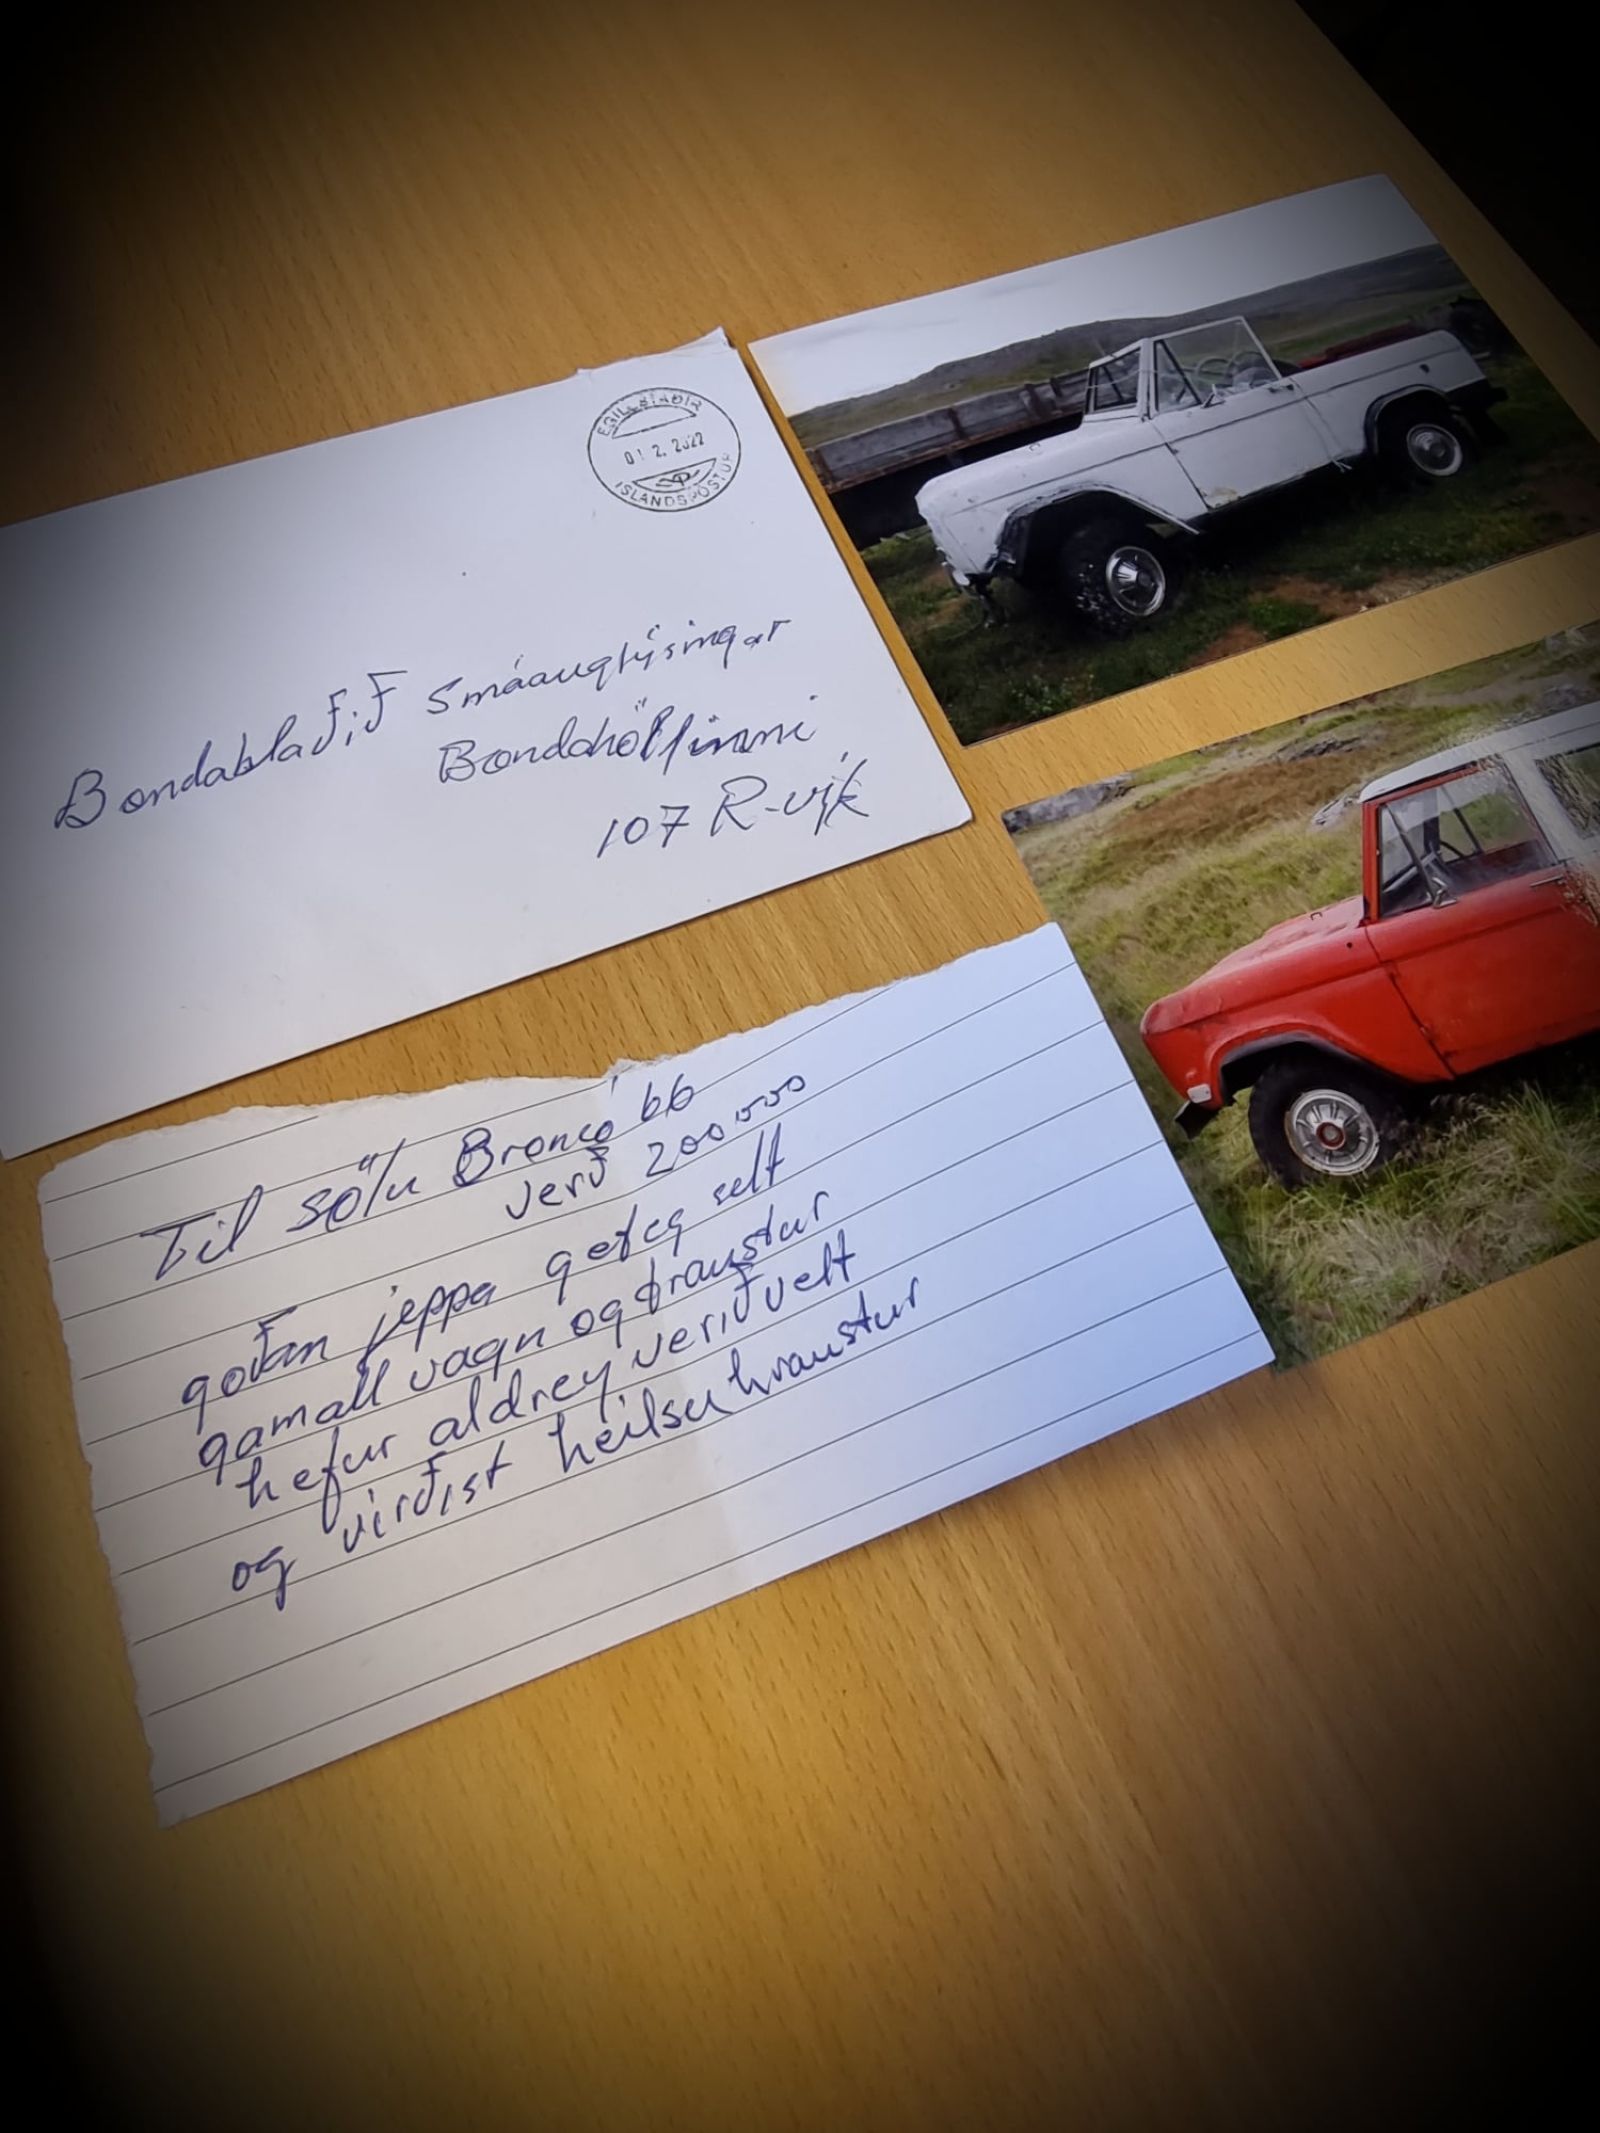 EGILLSTAÐIR
01.2.2022
ÍSLANDSPÓSTUR
Bondablaðið Smáauglýsingar
Bondahöllinni
107 R-vík
Til sölu Bronco '66
verð 200000
goðan jeppa get eg selt
gamall vagn og traustur
hefur aldrey verið velt
og virðist heilsuhraustur